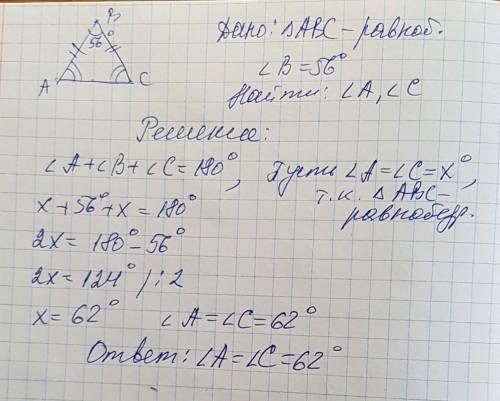 B
56°
A
C
Дано: △ABC – равноб.
∠B = 56°
Найти: ∠A, ∠C
Решение:
∠A + ∠B + ∠C = 180°, Пусть ∠A = ∠C = x°,
т.к. △ABC –
равнобедр.
x + 56° + x = 180°
2x = 180° – 56°
2x = 124° /: 2
x = 62° ∠A = ∠C = 62°
Ответ: ∠A = ∠C = 62°